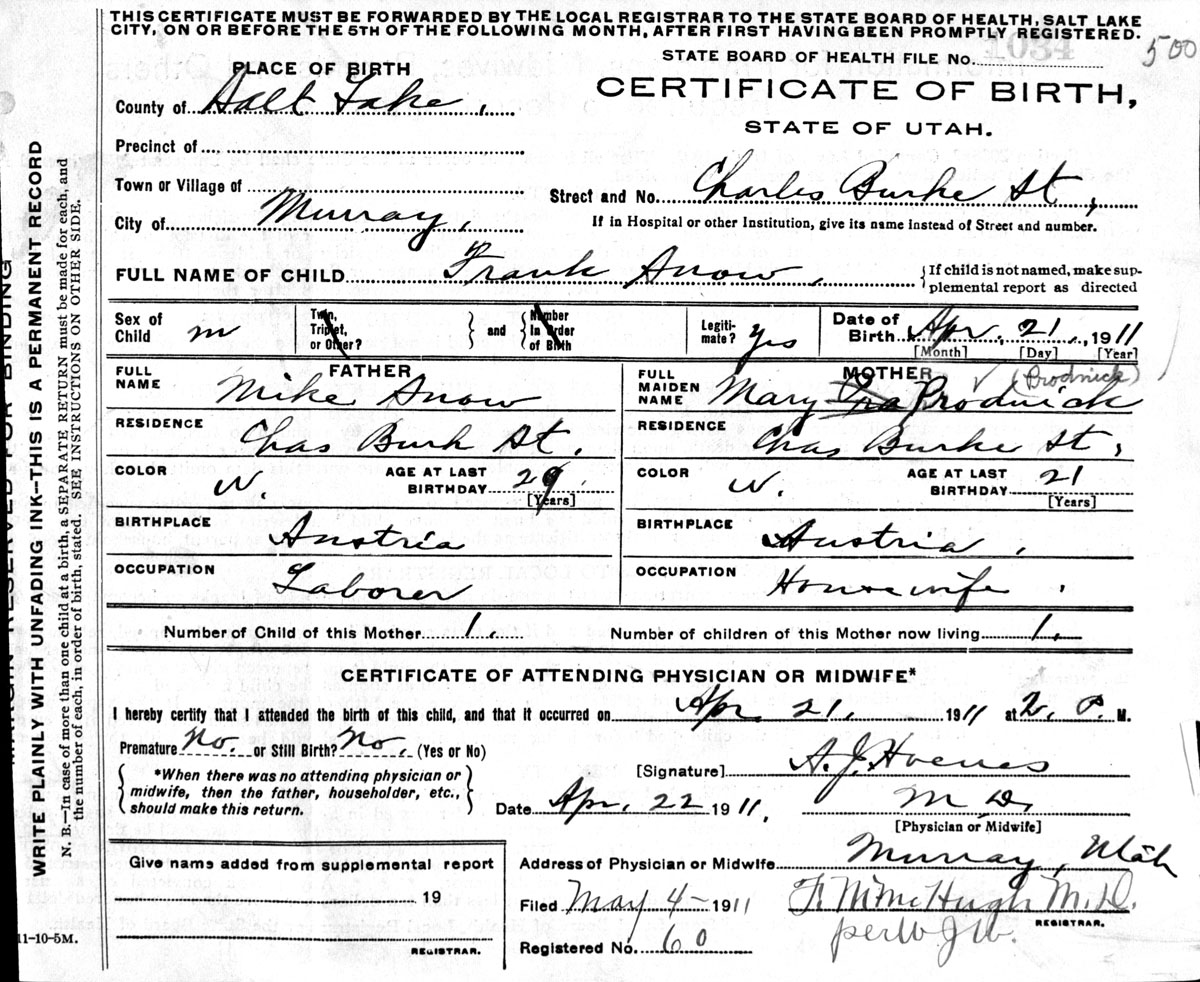 THIS CERTIFICATE MUST BE FORWARDED BY THE LOCAL REGISTRAR TO THE STATE BOARD OF HEALTH, SALT LAKE
CITY, ON OR BEFORE THE 5TH OF THE FOLLOWING MONTH, AFTER FIRST HAVING BEEN PROMPTLY REGISTERED.
500
STATE BOARD OF HEALTH FILE No. 1034
PLACE OF BIRTH
CERTIFICATE OF BIRTH,
County of Salt Lake,
STATE OF UTAH.
Precinct of
Town or Village of
Street and No. Charles Burke St,
City of Murray,
If in Hospital or other Institution, give its name instead of Street and number.
FULL NAME OF CHILD Frank Snow, {If child is not named, make sup-
plemental report as directed
Sex of Child m Twin, Triplet, or Other? } and { Number in Order of Birth Legiti-mate? yes Date of Birth Apr. 21, 1911
[Month] [Day] [Year]
FATHER
MOTHER (Brodnick)
FULL NAME Mike Snow
FULL MAIDEN NAME Mary Brodnick
RESIDENCE Chas Burk St.
RESIDENCE Chas Burke St,
COLOR W. AGE AT LAST BIRTHDAY 29 [Years]
COLOR W. AGE AT LAST BIRTHDAY 21 [Years]
BIRTHPLACE Austria
BIRTHPLACE Austria,
OCCUPATION Laborer
OCCUPATION Housewife.
Number of Child of this Mother 1. Number of children of this Mother now living 1.
CERTIFICATE OF ATTENDING PHYSICIAN OR MIDWIFE*
I hereby certify that I attended the birth of this child, and that it occurred on Apr. 21, 1911 at 2 P. M.
Premature No. or Still Birth? No. (Yes or No)
{ *When there was no attending physician or
midwife, then the father, householder, etc.,
should make this return. }
[Signature] A. J.
Date Apr. 22 1911. M D.
[Physician or Midwife]
Give name added from supplemental report
Address of Physician or Midwife Murray, Utah
19
Filed May 4 - 1911 McHugh M.D.
REGISTRAR.
per W J W.
REGISTRAR.
Registered No. 60
11-10-5M.
MARGIN RESERVED FOR BINDING
WRITE PLAINLY WITH UNFADING INK—THIS IS A PERMANENT RECORD
N. B.—In case of more than one child at a birth, a SEPARATE RETURN must be made for each, and
the number of each, in order of birth, stated. SEE INSTRUCTIONS ON OTHER SIDE.